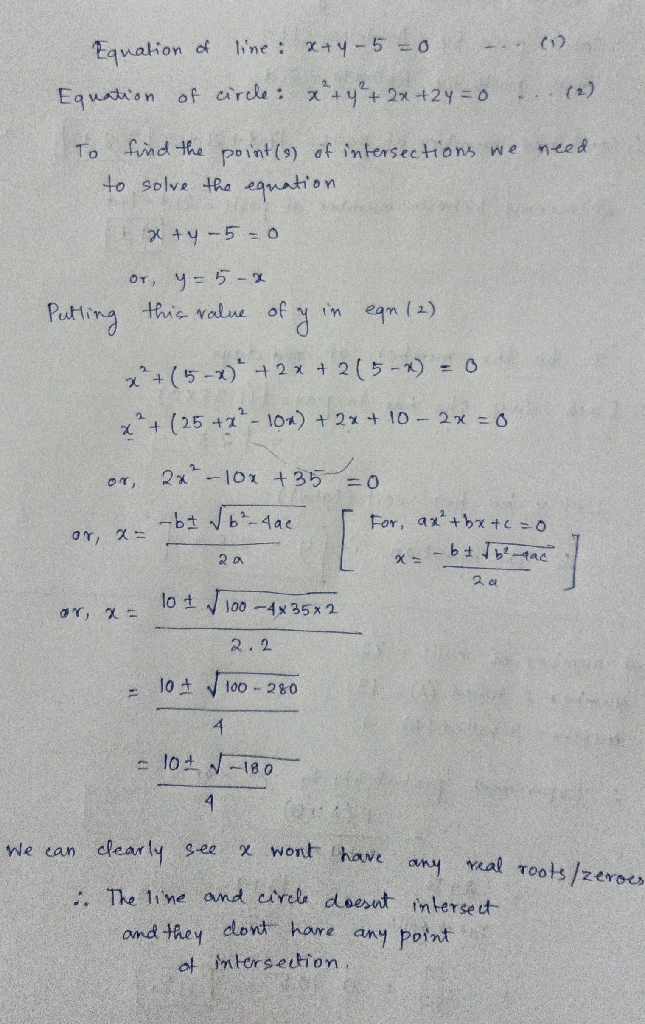 Equation of line : x+y-5 = 0 .... (1)
Equation of circle : x²+y²+2x+2y=0 ... (2)
To find the point(s) of intersections we need
to solve the equation
x+y-5=0
or, y=5-x
Putting this value of y in eqn (2)
x²+(5-x)²+2x+2(5-x) = 0
x²+(25+x²-10x)+2x+10-2x=0
or, 2x²-10x+35=0
or, x = (-b±√(b²-4ac))/2a [For, ax²+bx+c=0
x = (-b±√(b²-4ac))/2a]
or, x = (10±√(100-4×35×2))/2.2
= (10±√(100-280))/4
= (10±√(-180))/4
We can clearly see x wont have any real roots/zeroes
∴ The line and circle doesnt intersect
and they dont have any point
of intersection.